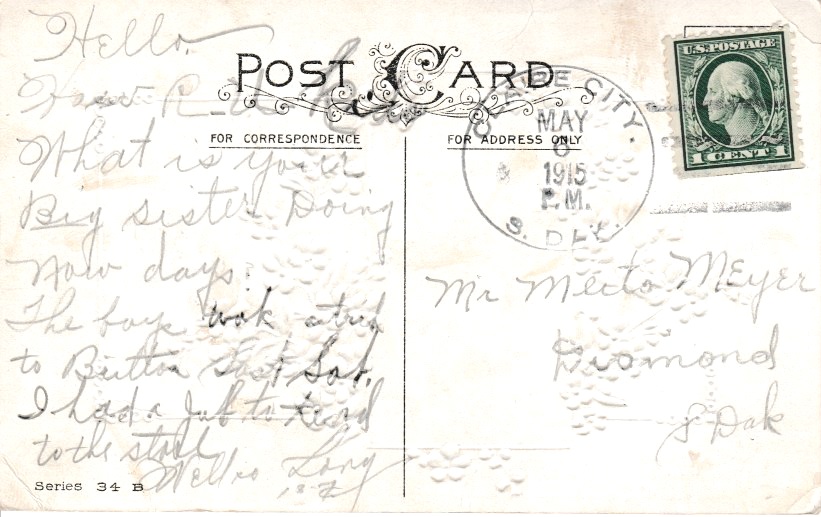 POST CARD
FOR CORRESPONDENCE
FOR ADDRESS ONLY
U.S. POSTAGE
1 CENT 1
CITY.
MAY
6
1915
P.M.
S. DAK.
Hello.
How R U
What is your
Big sister Doing
Now days
The boys took a trip
to Button Last Sat.
I had a Job to tend
to the stock
Long
Mr MEYER
Diamond
S Dak
Series 34 B